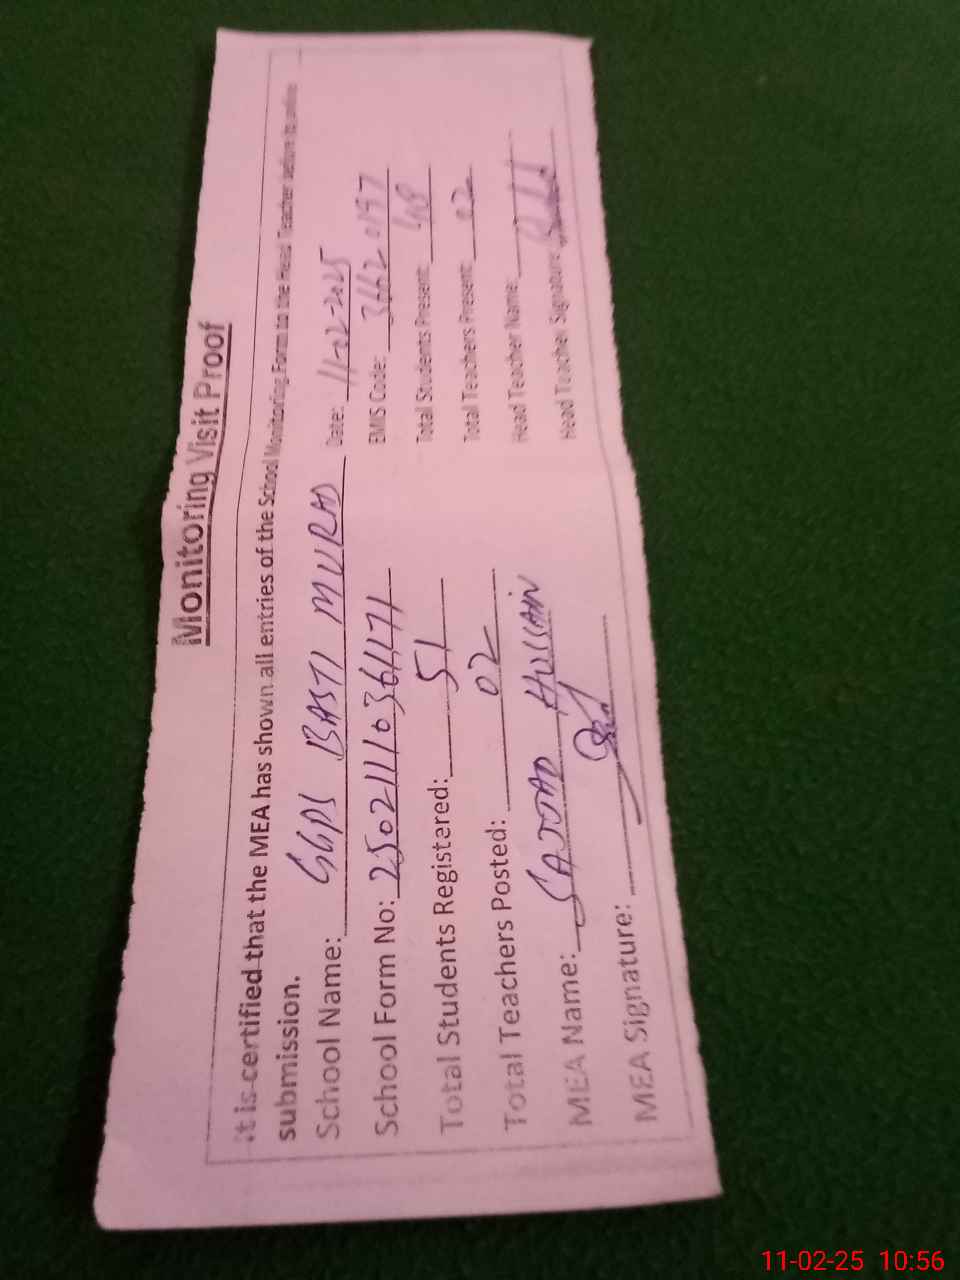 Monitoring Visit Proof
It is certified that the MEA has shown all entries of the School Monitoring Form to the Head Teacher before its online
submission.
School Name: GGPS BASTI MURAD Date: 11-02-2025
School Form No: 2502111036171 EMIS Code: 36620197
Total Students Registered: 51 Total Students Present: 48
Total Teachers Posted: 02 Total Teachers Present: 02
MEA Name: SAJJAD HUSSAIN Head Teacher Name:
MEA Signature: Head Teacher Signature:
11-02-25 10:56